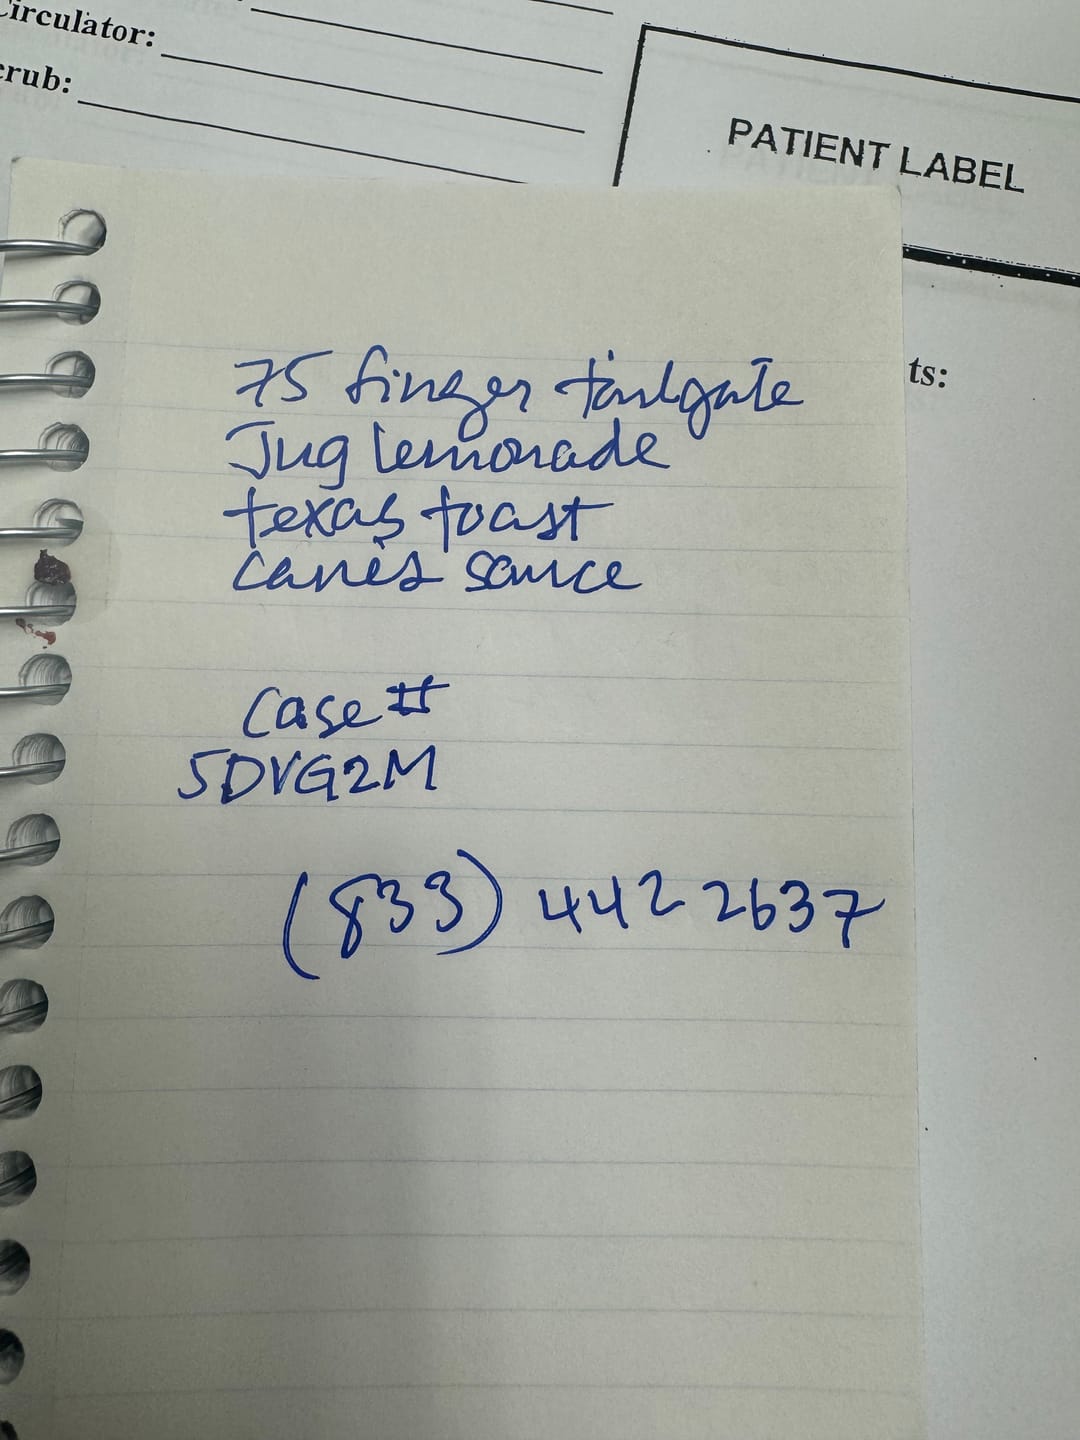 Circulator:
PATIENT LABEL
ts:
75 finger tailgate
Jug lemonade
texas toast
cane's sauce
Case #
5DVG2M
(833) 442 2637